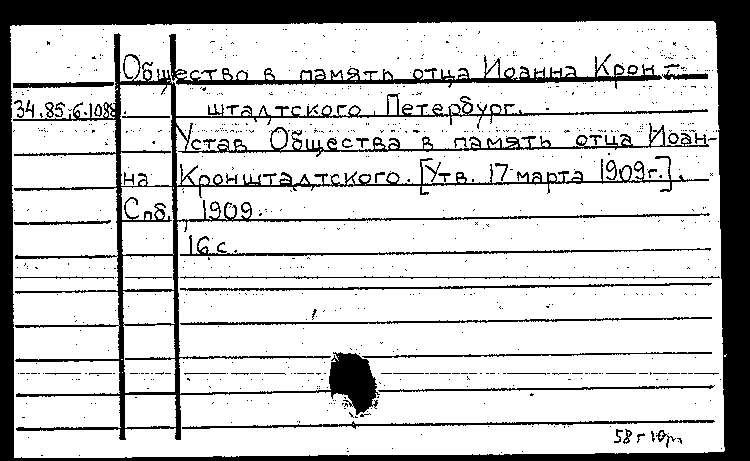 Общество в память отца Иоанна Крон-
34.85.6.1088. штадтского. Петербург.
Устав Общества в память отца Иоан-
на Кронштадтского. [Утв. 17 марта 1909г.].
Спб., 1909.
16 с.
58 г